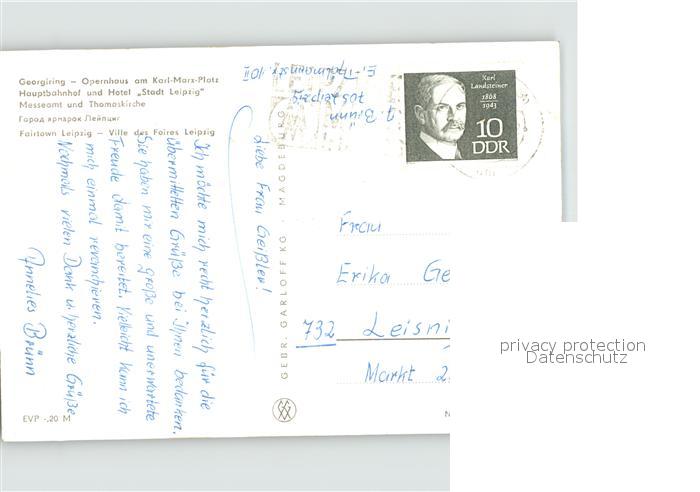 Georgiring – Opernhaus am Karl-Marx-Platz
Hauptbahnhof und Hotel „Stadt Leipzig"
Messeamt und Thomaskirche
Город ярмарок Лейпциг
Fairtown Leipzig – Ville des Foires Leipzig
Liebe Frau Geißler!
Ich möchte mich recht herzlich für die
übermittelten Grüße bei Ihnen bedanken.
Sie haben mir eine große und unerwartete
Freude damit bereitet. Vielleicht kann ich
mich einmal revanchieren.
Nochmals vielen Dank u. herzliche Grüße
Annelies Brünn
EVP -,20 M
GEBR. GARLOFF KG · MAGDEBURG
Brünn
705 Leipzig
E.-Thälmannstr. 10
Karl
Landsteiner
1868
1943
10
DDR
Frau
Erika Ge
732 Leisni
Markt 2
N
privacy protection
Datenschutz